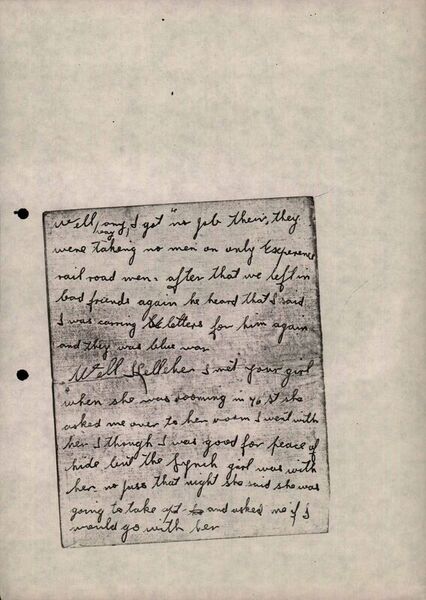 Well, any way, I got no job their, they
were taking no men on only Experience
rail road men. after that we left in
bad friends again he heard that I said
I was carring letters for him again
and they was blue war
Well Kelleher I met your girl
when she was rooming in 46 st she
asked me over to her room I went with
her I though I was good for peace of
hide but the Lynch girl was with
her no fuss that night she said she was
going to take apt and asked me if I
would go with her